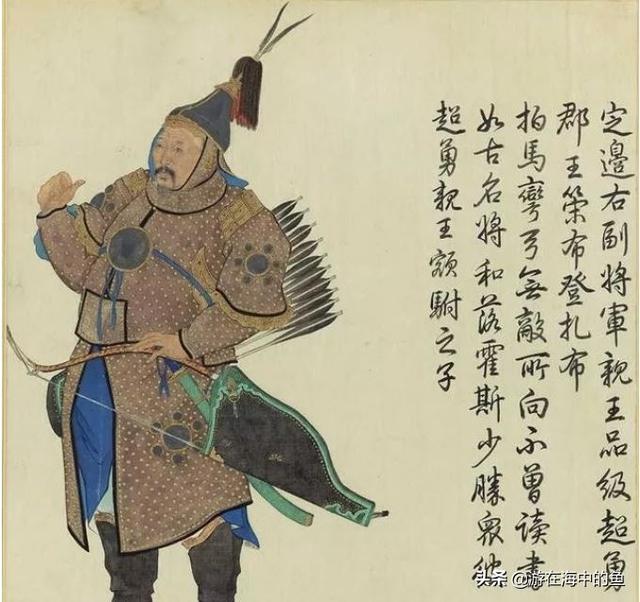 定邊右副將軍親王品級超勇
郡王策布登扎布
拍馬彎弓無敵所向不曾讀書
如古名將和落霍斯少勝眾彼
超勇親王額駙之子
头条 @游在海中的鱼